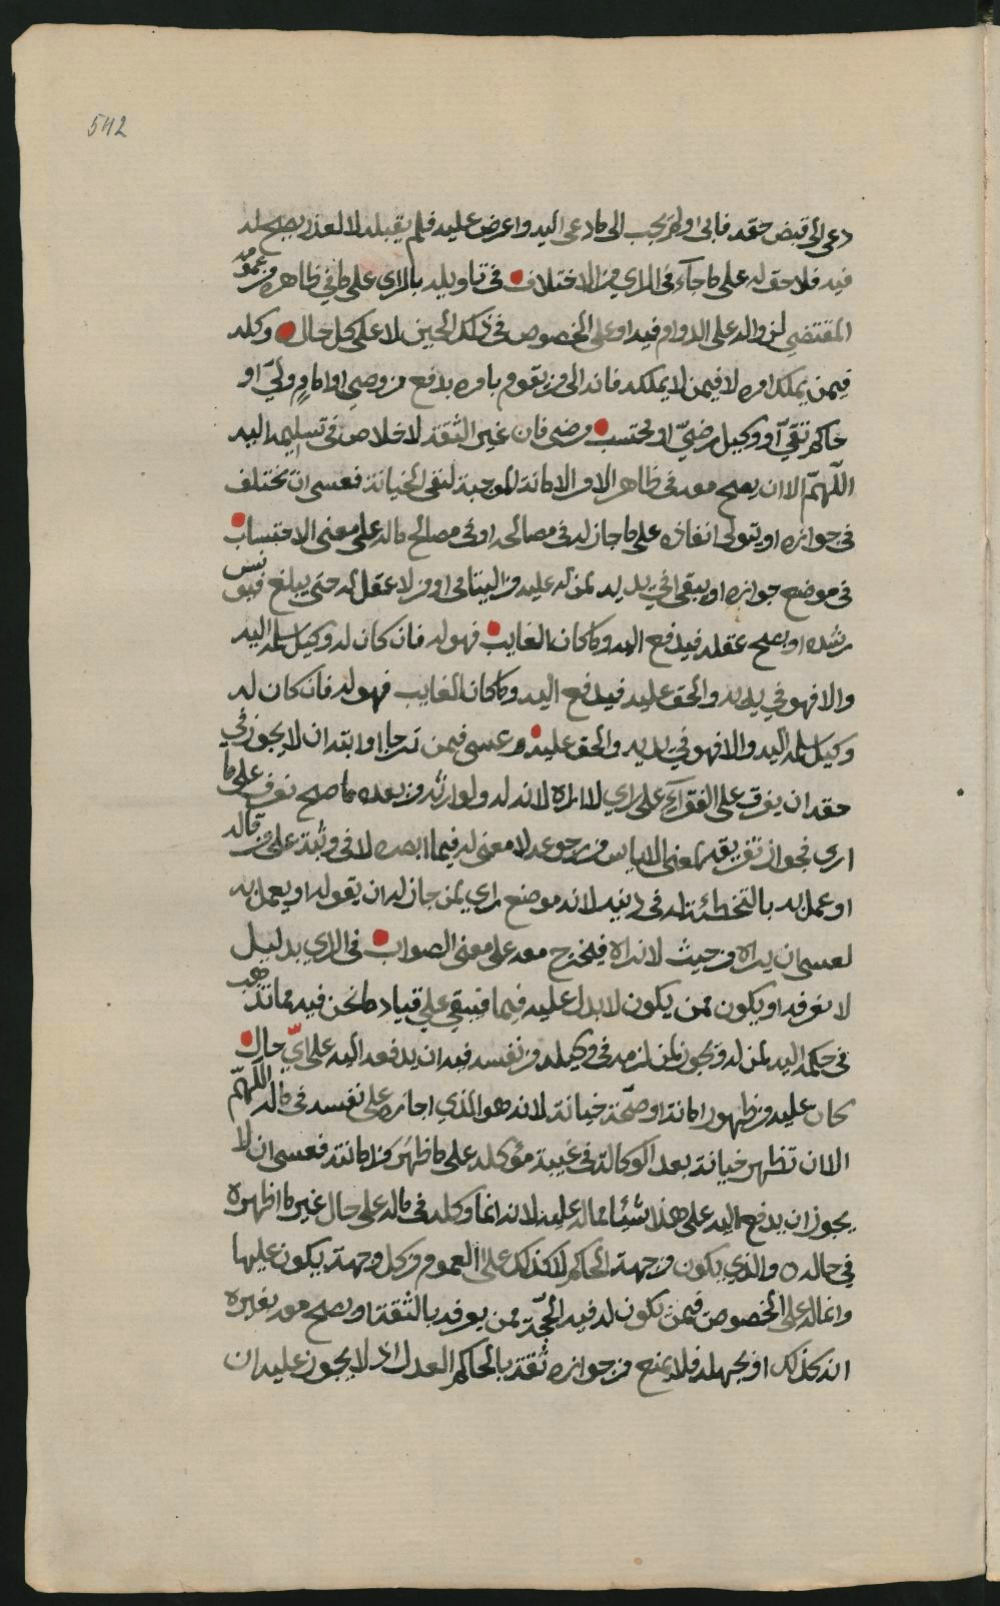 542
دعي الى قبض حقه فابى اولم يجب الى ما دعي اليه واعرض عليه فلم يقبله لا لعذر يصح له
فيه فلا حق له على ما جاء في الراي من الاختلاف في تاويله بالراي على ما في ظاهره من عمومه
المقتضي لزواله على الدوام فيه او على الخصوص في ذلك الحين لا على كل حال وكله
فيمن يملك امره لا فيمن لا يملكه فانه الى من يقوم بامره بلا فع من وصي او امام ولي او
حاكم تقي او وكيل رضي او محتسب مرضي فان غير الثقة لا خلاص في تسليمه اليه
اللهم الا ان يصح معه في ظاهر الامر الامانة الموجبة لنفي الخيانة فعسى ان يختلف
في جوازه او يتولى انفاذه على ما جاز له في مصالحه او في مصالح ماله على معنى الاحتساب
في موضع جوازه او يبقى في يديه لمن له عليه من اليتامى او من لا عقل له حتى يبلغ فيونس
رشده او يصح عقله فيدفع اليه وما كان الغايب فهو له فان كان له وكيل سلمه اليه
والا فهو في يديه والحق عليه فيدفع اليه وما كان الغايب فهو له فان كان له
وكيل سلمه اليه والا فهو في يديه والحق عليه وعسى فيمن ترجا اوابته ان لا يجوز في
حقه ان يفرق على الفقراء على راي لا اراه لانه له ولوارثه من بعده ما صح نعرف على ما
ارى فجواز تفريقه لمعنى الاياس من رجوعه لا معنى له فيما ابصره لا في وثبة على من قاله
او عمل به بالتخطئة له في دينه لانه موضع راي لمن جاز له ان يقوله او يعمل به
لعسى ان يراه من حيث لا نراه فيخرج معه على معنى الصواب في الراي بدليل
لا نعرفه او يكون ممن يكون لا بدل عليه فيما فيبقى على قياد ما نحن فيه مما نذهب
في حكمه اليه لمن له ويجوز لمن لزمه في وكيله من نفسه فيه ان يدفعه اليه على اي حال
كان عليه من ظهور امانة او صحة خيانة لانه هو الذي اجازه على نفسه في ماله اللهم
الا ان تظهر خيانته بعد الوكالة في غيبة موكله على ما ظهر من امانته فعسى ان لا
يجوز ان يدفع اليه على هذا شيئا مما له عليه لانه انما وكله في ماله على حال غير ما اظهره
في حاله ٥ والذي يكون من جهة الحاكم لا كذلك على العموم من كل وجهة يكون عليها
وانما له على الخصوص فيمن تكون له فيه الحجة ممن يعرفه بالثقة او يصح معه بغيره
انه كذلك او يجهله فلا يمنع من جوازه ثقة بالحاكم العدل اذ لا يجوز عليه ان